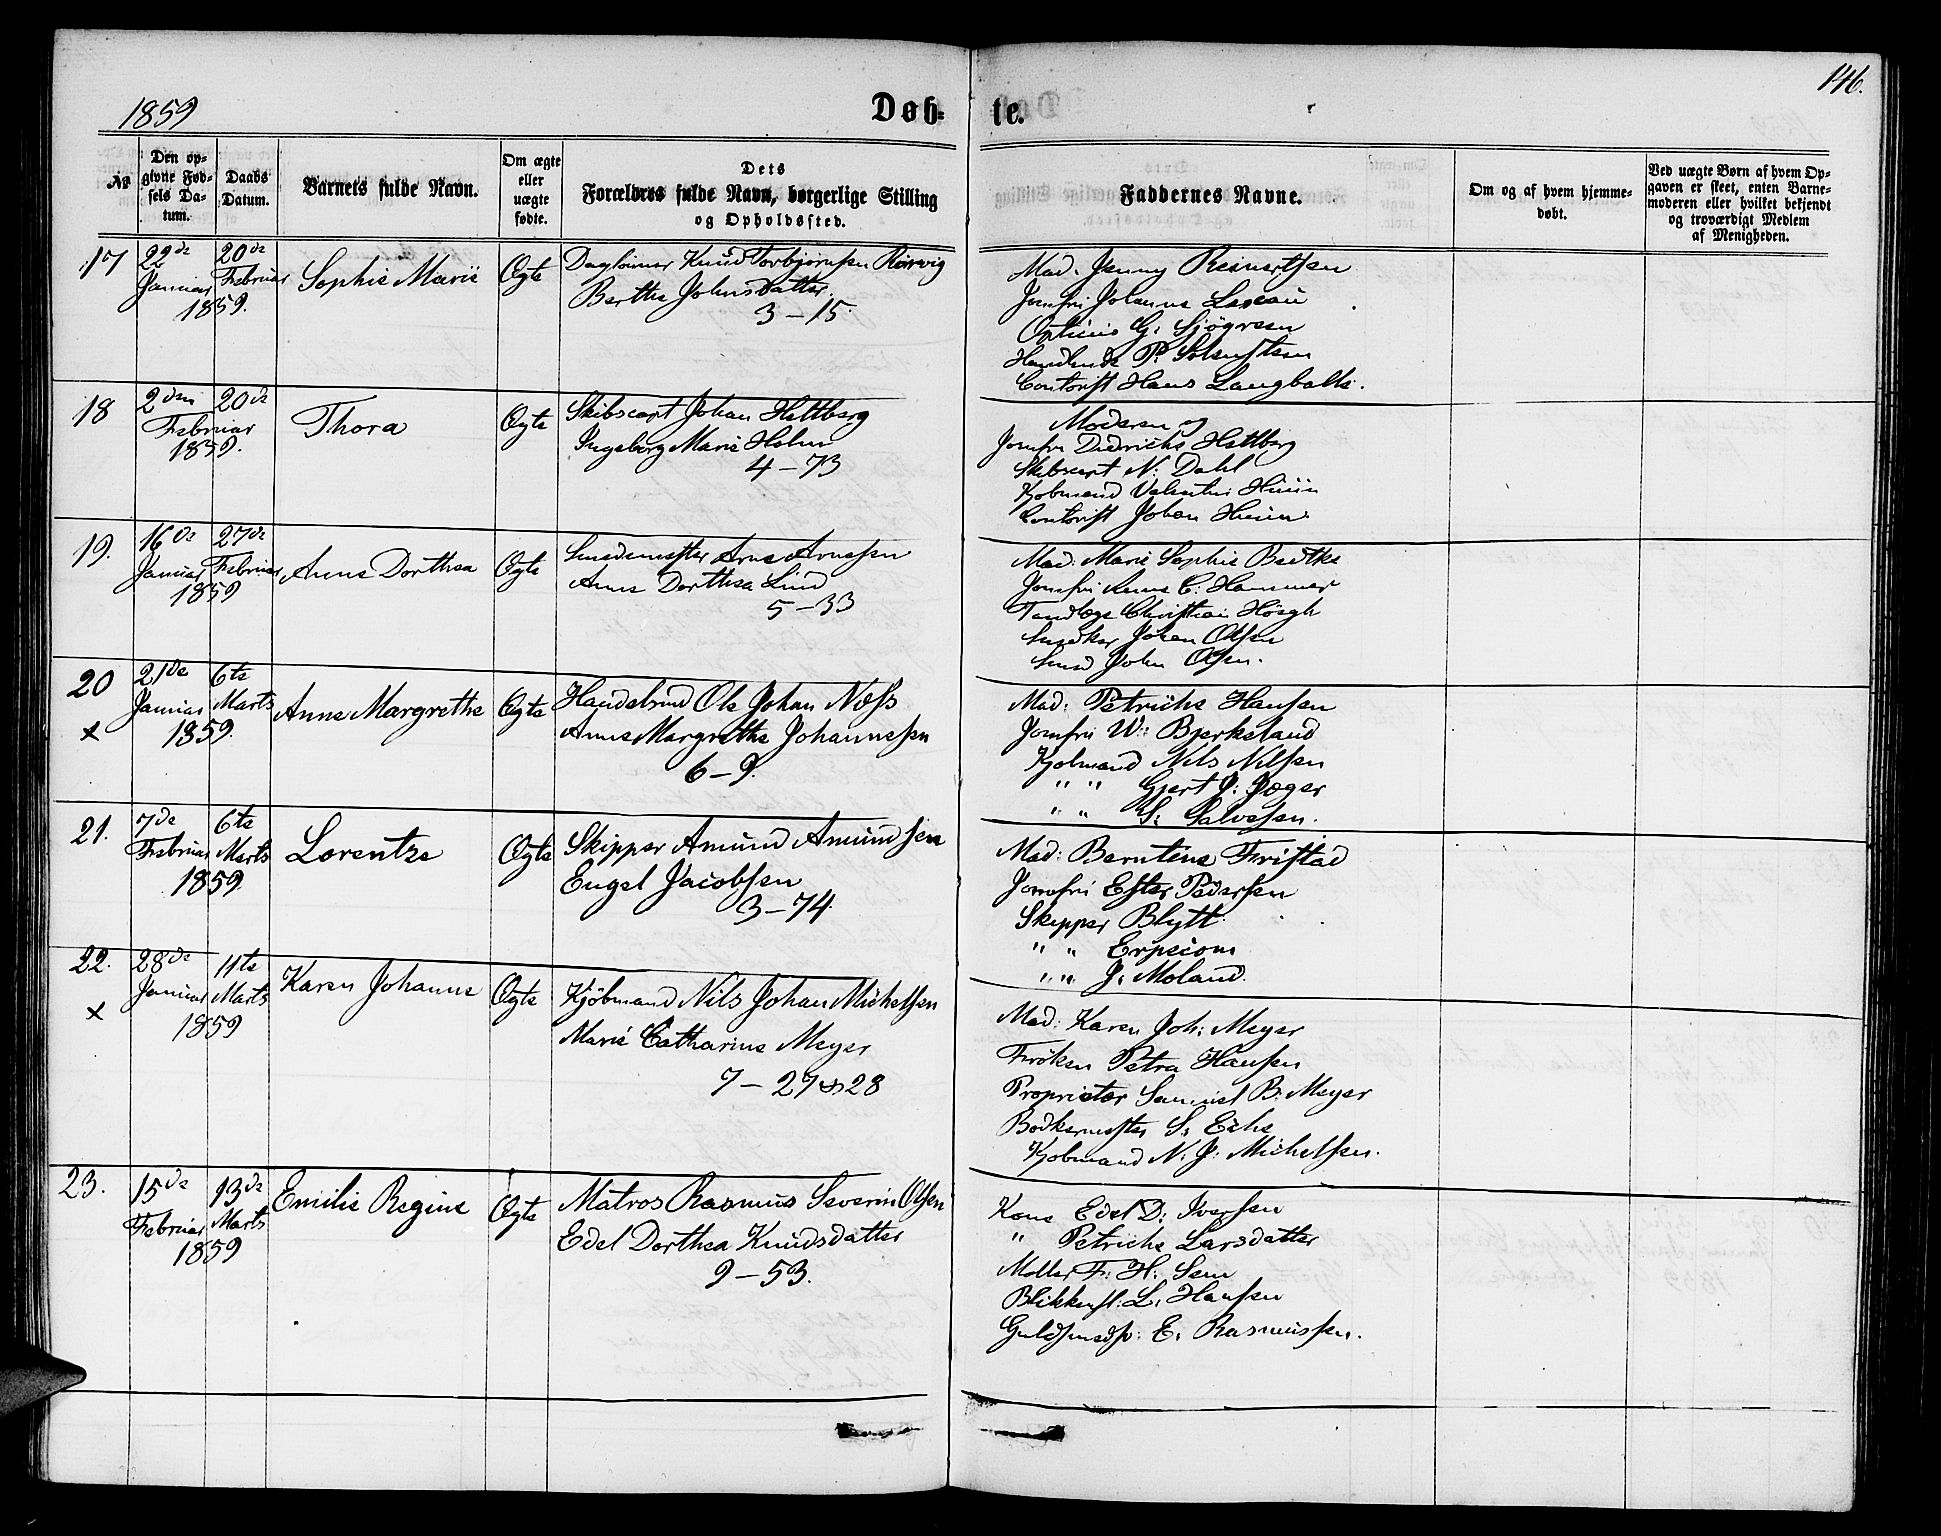 146.
1859
Døb= te.
№
Den op-
givne Fød-
sels Da-
tum.
Daabs
Datum.
Barnets fulde Navn.
Om ægte
eller
uægte
fødte.
Dets
Forældres fulde Navn, borgerlige Stilling
og Opholdssted.
Faddernes Navne.
Om og af hvem hjemme-
døbt.
Ved uægte Børn af hvem Op-
gaven er skeet, enten Barne-
moderen eller hvilket bekjendt
og troværdigt Medlem
af Menigheden.
17
22de
Januar
20de
Februar
1859.
Sophie Marie
Ægte
Dagleiner Knud Torbjørnsen Rørvig
Berthe Johnsdatter
3 – 15.
Mad. Jenny Reinertsen
Jomfru Johanne
G. Sjögreen
P.
Contorist Hans Langballe.
18
2den
20de
Februar
1859.
Thora
Ægte
Skibscapt Johan Hettberg
Ingeborg Marie Holm
4 – 73
Moderen og
Jomfru Diedriche Hettberg
Skibscapt N. Dahl
Kjøbmand Valentin
Contorist Johan
19.
16de
Januar
27de
Februar
1859
Anne Dorthea
Ægte
Smedemester Arne Arnesen
Anne Dorthea Lind
5 – 33
Mad: Marie Sophie Bedtke
Jomfru Anne C. Hammer
Tandlæge Christian Höegh
Snedker Johan Olsen
Smed John Olsen.
20
x
21de
Januar
6te
Marts
1859.
Anne Margrethe
Ægte
Handelsmd Ole Johan Næss
Anne Margrethe Johannessen
6 – 9.
Mad: Petriche Hansen
Jomfru W: Bjerkeland
Kjøbmand Nils Nilsen
" " Gjert J: Jæger
" " S: Salvesen.
21.
7de
Februar
6te
Marts
1859.
Lorentze
Ægte
Skipper Amund Amundsen
Engel Jacobsen
3 – 74.
Mad: Berntine Fristad
Jomfru Ester Pedersen
Skipper Blytt
" "
" " J. Moland.
22.
x
28de
Januar
11te
Marts
1859
Karen Johanne
Ægte
Kjøbmand Nils Johan Michelsen
Marie Catharine Meyer
7 – 27 & 28
Mad: Karen Joh: Meyer
Frøken Petra Hansen
Proprietær Samuel B. Meyer
Bødkermester S: Eche
Kjøbmand N. J. Michelsen.
23.
15de
Februar
13de
Marts
1859
Emilie Regine
Ægte
Matros Rasmus Severin Olsen
Edel Dorthea Knudsdatter
9 – 53.
Kone Edel D: Iversen
" Petriche Larsdatter
Møller F. H. Sem
Blikkensl: L. Hansen
Guldsmedsv: E. Rasmussen.